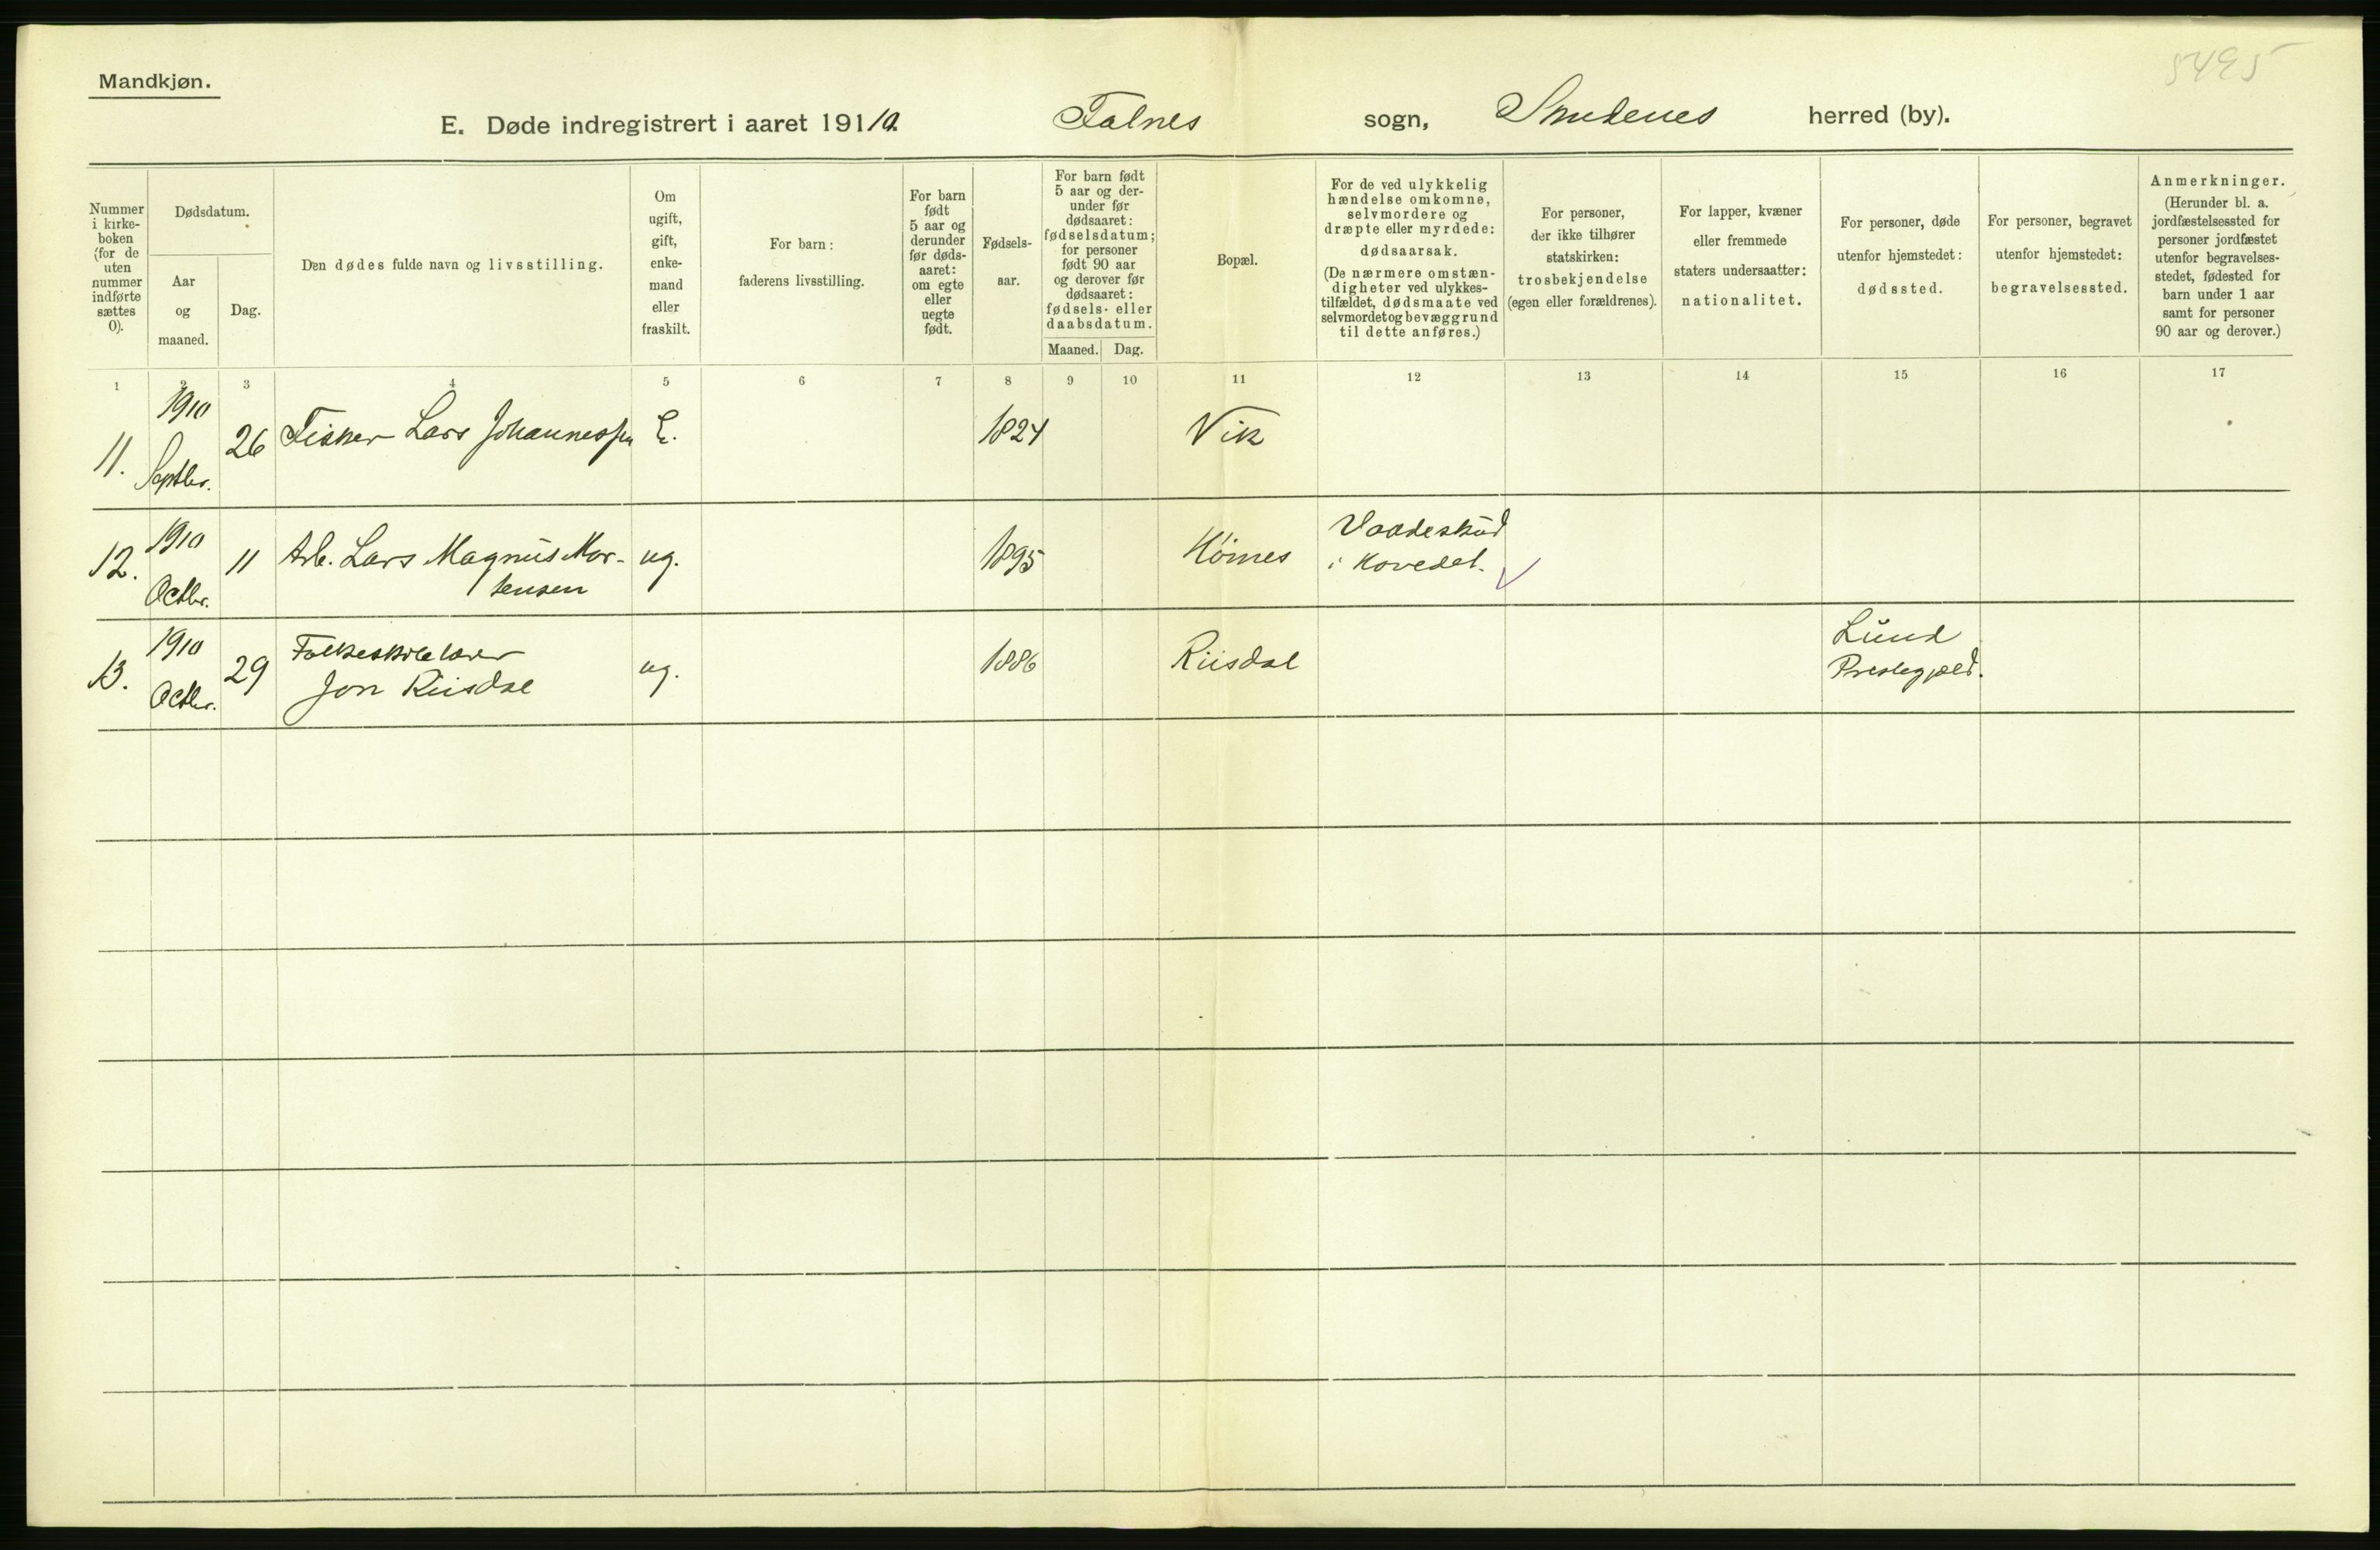 5495
Mandkjøn.
E. Døde indregistrert i aaret 19110. Falnes sogn, Skudenes herred (by).
Nummer
i kirke-
boken
(for de
uten
nummer
indførte
sættes
0).
Dødsdatum.
Aar
og
maaned.
Dag.
Den dødes fulde navn og livsstilling.
Om
ugift,
gift,
enke-
mand
eller
fraskilt.
For barn:
faderens livsstilling.
For barn
født
5 aar og
derunder
før døds-
aaret:
om egte
eller
uegte
født.
Fødsels-
aar.
For barn født
5 aar og der-
under før
dødsaaret:
fødselsdatum;
for personer
født 90 aar
og derover før
dødsaaret:
fødsels- eller
daabsdatum.
Maaned. Dag.
Bopæl.
For de ved ulykkelig
hændelse omkomne,
selvmordere og
dræpte eller myrdede:
dødsaarsak.
(De nærmere omstæn-
digheter ved ulykkes-
tilfældet, dødsmaate ved
selvmordet og bevæggrund
til dette anføres.)
For personer,
der ikke tilhører
statskirken:
trosbekjendelse
(egen eller forældrenes).
For lapper, kvæner
eller fremmede
staters undersaatter:
nationalitet.
For personer, døde
utenfor hjemstedet:
dødssted.
For personer, begravet
utenfor hjemstedet:
begravelsessted.
Anmerkninger.
(Herunder bl. a.
jordfæstelsessted for
personer jordfæstet
utenfor begravelses-
stedet, fødested for
barn under 1 aar
samt for personer
90 aar og derover.)
1 2 3 4 5 6 7 8 9 10 11 12 13 14 15 16 17
1910
11. Septbr. 26 Fisker Lars Johannessen E. 1824 Vik
1910
12. Octbr. 11 Arb. Lars Magnus Mor-
tensen ug. 1895 Hömes Vaadeskud
i Hovedet.
1910
13. Octbr. 29 Folkeskolelærer
Jon Riisdal ug. 1886 Riisdal Lund
Prestegjeld.